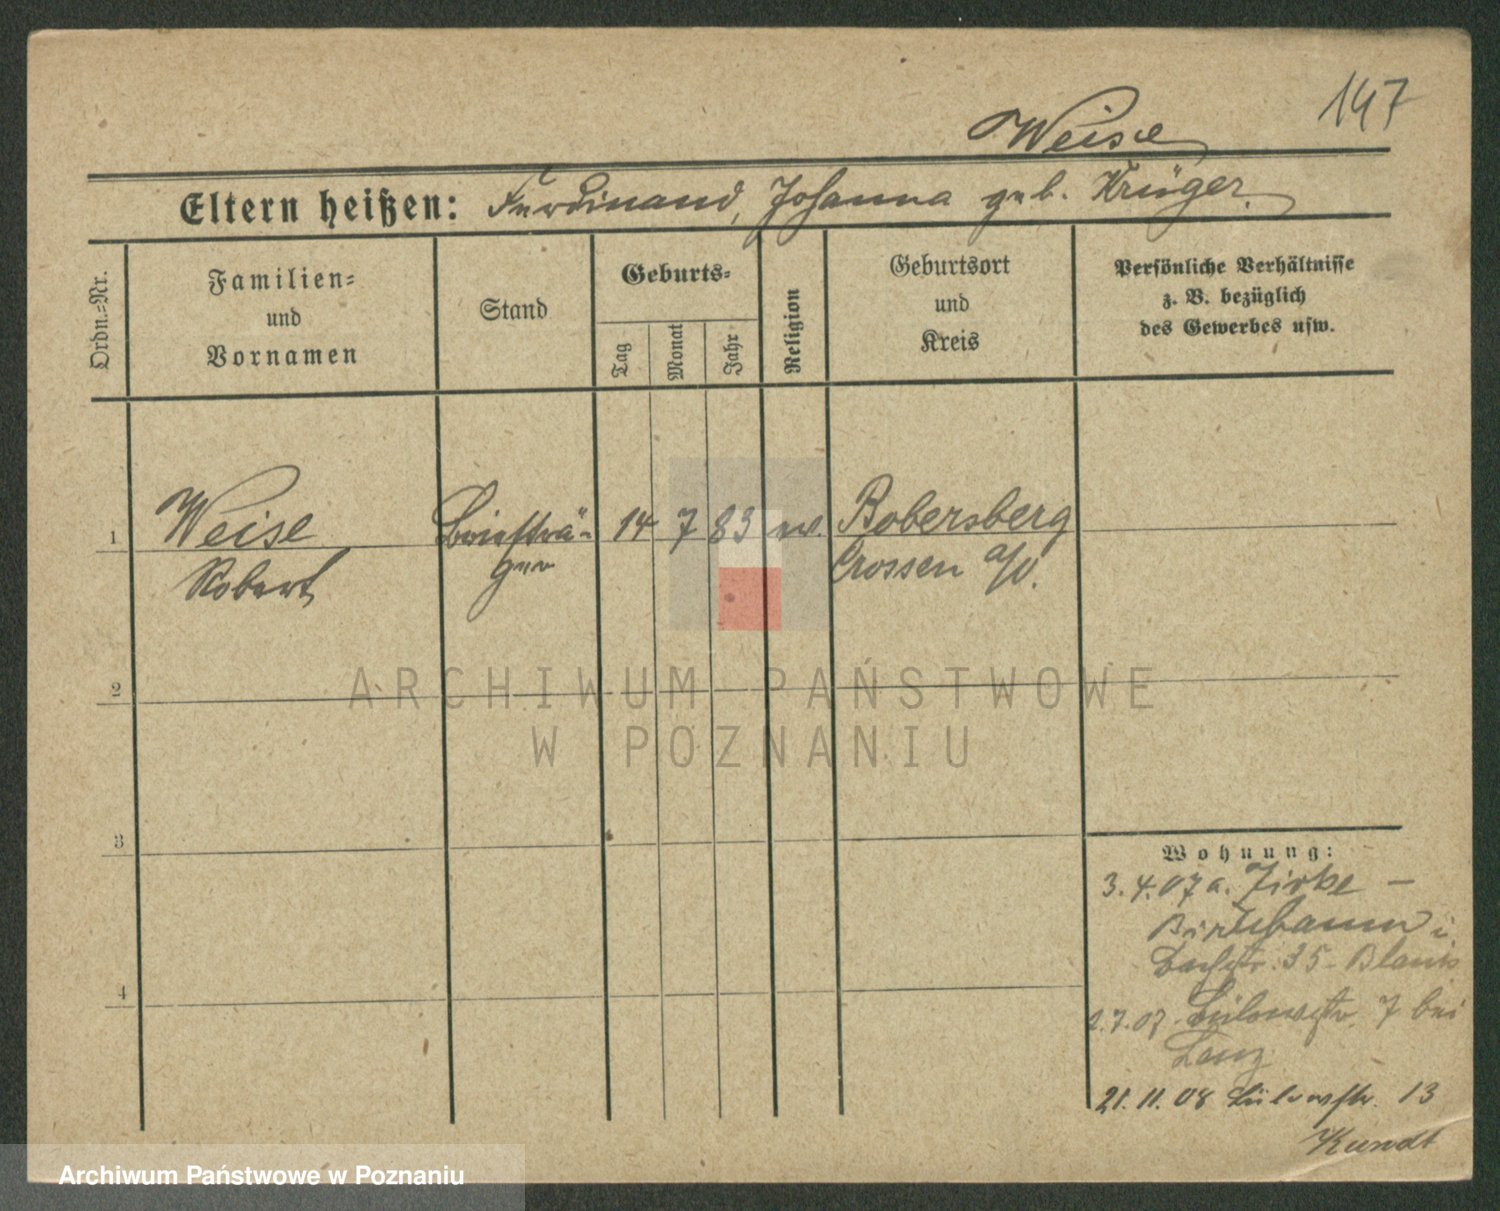 147
Weise
Eltern heißen: Ferdinand, Johanna geb. Krüger.
Ordn.-Nr.
Familien-
und
Vornamen
Stand
Geburts-
Tag
Monat
Jahr
Religion
Geburtsort
und
Kreis
Persönliche Verhältnisse
z. B. bezüglich
des Gewerbes usw.
1
Weise
Robert
Briefträ-
ger
14
7
83
ev.
Bobersberg
Crossen a/O.
2
ARCHIWUM PAŃSTWOWE
W POZNANIU
3
4
Wohnung:
3.4.07 a. Zirke –
Birnbaum
35
7.07. Bülowstr. 7 bei
21.11.08 Bülowstr. 13
Kundt
Archiwum Państwowe w Poznaniu